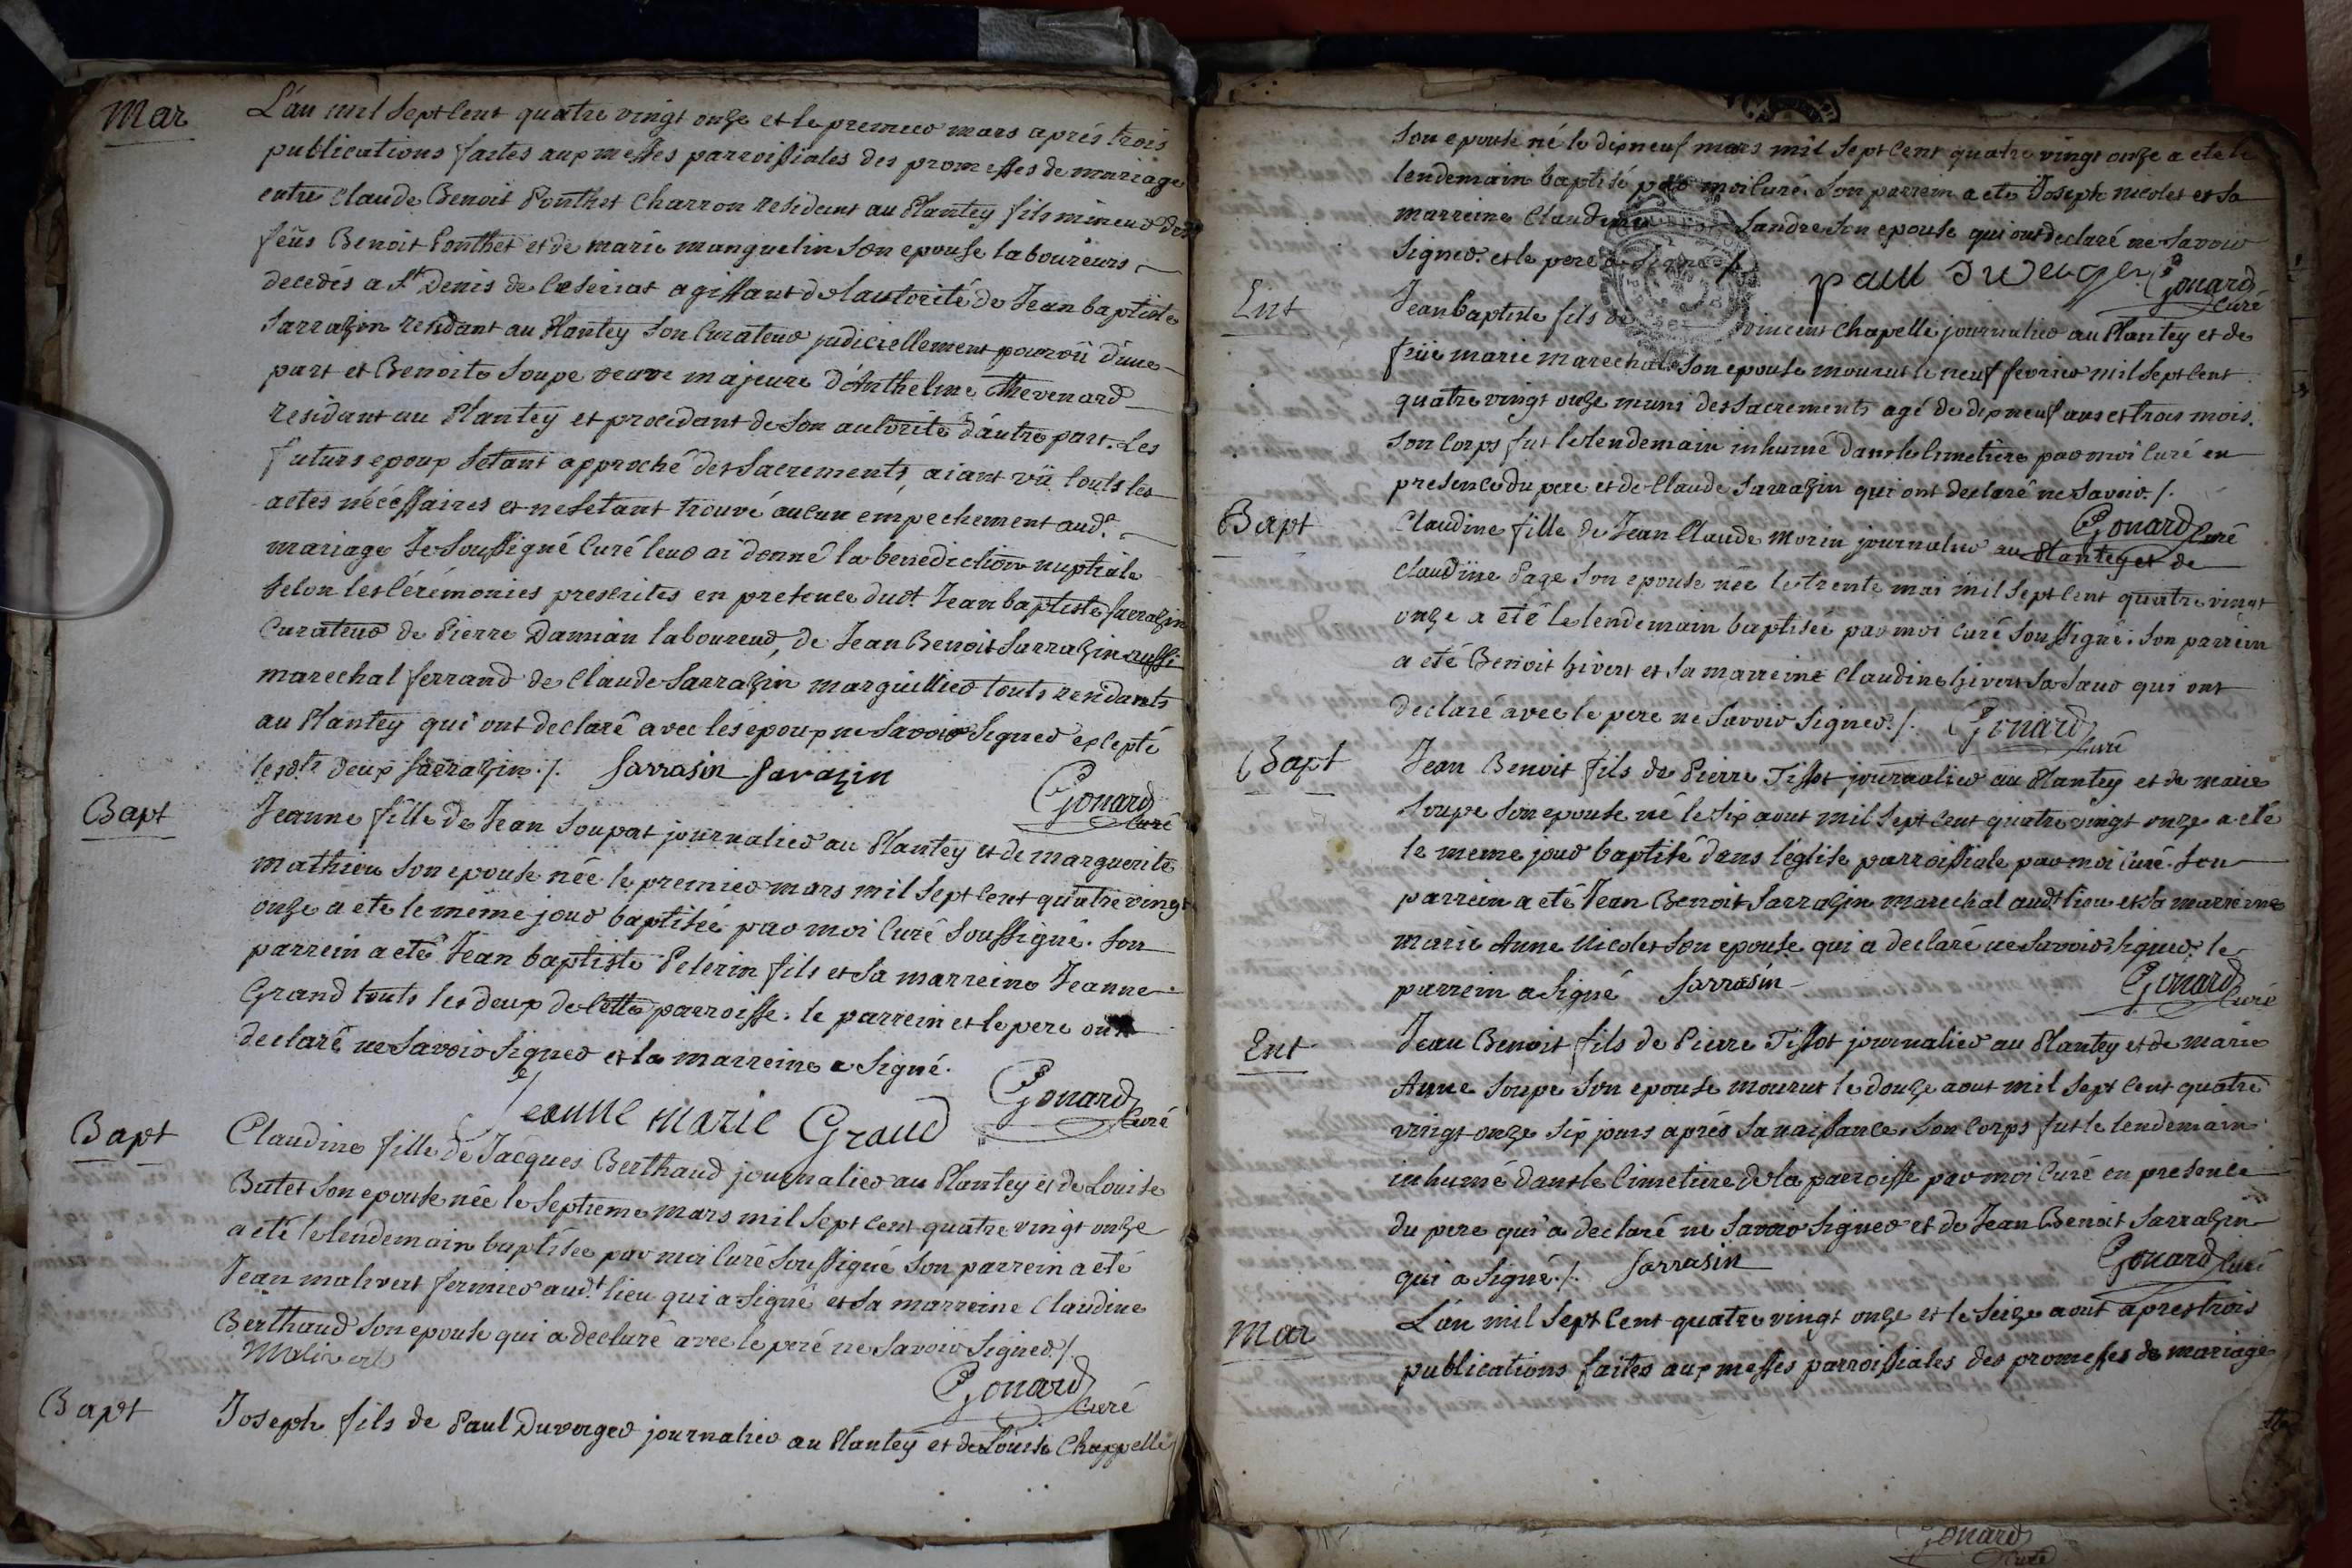 Mar
L'an mil sept cent quatre vingt onze et le premier mars aprés trois
publications faites aux messes parroissiales des promesses de mariage
entre Claude Benoit Ponthet Charron residant au Plantey fils mineur des
feüs Benoit Ponthet et de marie manguelin son epouse laboureurs
decedés a St Denis de Ceseriat agissant de lautorité de Jean baptiste
Sarrazin residant au Plantey son Curateur judiciellement pourvü d'une
part et Benoite Soupe veuve majeure d'Anthelme Thevenard
residant au Plantey et procedant de son autorité d'autre part. Les
futurs epoux sétant approché des Sacrements, aiant vü touts les
actes nécéssaires et ne sétant trouvé aucun émpechement audt.
mariage Je Soussigné Curé leur ai donné la benediction nuptiale
selon les Cérémonies prescrites en presence dudt. Jean baptiste Sarrazin
Curateur de Pierre Damian laboureur, de Jean Benoit Sarrazin aussi
marechal ferrand de Claude Sarrazin marguillier touts residants
au Plantey qui ont declaré avec les époux ne Savoir Signer excepté
lesdts deux Sarrazin ./. Sarrasin Sarazin
Gonard Curé
Bapt
Jeanne fille de Jean Soupat journalier au Plantey et de marguerite
mathieu son epouse née le premier mars mil sept cent quatre vingt
onze a eté le même jour baptisée par moi Curé Soussigné. Son
parrein a eté Jean baptiste Pelerin fils et sa marreine Jeanne
Grand touts les deux de Cette parroisse. le parrein et le pere ont
declaré ne Savoir Signer et la marreine a Signé.
Jeanne marie Grand Gonard Curé
Bapt
Claudine fille de Jacques Berthaud journalier au Plantey et de Louise
Butet son epouse née le Septieme mars mil sept cent quatre vingt onze
a eté le lendemain baptisée par moi Curé Soussigné son parrein a eté
Jean malivert fermier audt. lieu qui a Signé et sa marreine Claudine
Berthaud son epouse qui a declaré avec le peré ne Savoir Signer ./.
Malivert
Gonard Curé
Bapt
Joseph fils de Paul Duverger journalier au Plantey et de Louise Chappelle
son epouse né le dixneuf mars mil sept cent quatre vingt onze a eté le
lendemain baptisé par moi Curé. Son parrein a eté Joseph nicolet et sa
marreine Claudine Sandre son epouse qui ont declaré ne Savoir
Signer. et le pere a Signé ./.
paul Duverger Gonard Curé
Ent
Jean baptiste fils de vincent Chapelle journalier au Plantey et de
füe marie marechal son epouse mourut le neuf fevrier mil sept cent
quatre vingt onze muni des Sacrements agé de dixneuf ans et trois mois.
Son Corps fut le lendemain inhumé dans le Cimetiere par moi Curé en
presence du pere et de Claude Sarrazin qui ont declaré ne Savoir ./.
Gonard Curé
Bapt
Claudine fille de Jean Claude Morin journalier au Plantey et de
Claudine Page son epouse née le trente mai mil sept cent quatre vingt
onze a eté le lendemain baptisée par moi Curé Soussigné. Son parrein
a eté Benoit hivert et sa marreine Claudine hivert sa Saur qui ont
declaré avec le pere ne Savoir Signer ./. Gonard Curé
Bapt
Jean Benoit fils de Pierre Tissot journalier au Plantey et de marie
Soupe son epouse né le Six aout mil sept cent quatre vingt onze a eté
le meme jour baptisé dans l'église parroissiale par moi Curé. Son
parrein a eté Jean Benoit Sarrazin marechal audt. lieu et sa marreine
marie Anne Nicolet son epouse qui a declaré ne Savoir Signer. le
parrein a Signé Sarrasin Gonard Curé
Ent
Jean Benoit fils de Pierre Tissot journalier au Plantey et de Marie
Anne Soupe son epouse mourut le douze aout mil sept cent quatre
vingt onze six jours aprés sa naissance. Son Corps fut le lendemain
inhumé dans le Cimetiere de la parroisse par moi Curé en presence
du pere qui a declaré ne Savoir Signer et de Jean Benoit Sarrazin
qui a Signé ./. Sarrasin Gonard Curé
Mar
L'an mil sept cent quatre vingt onze et le Seize aout apres trois
publications faites aux messes parroissiales des promesses de mariage
Gonard
Curé